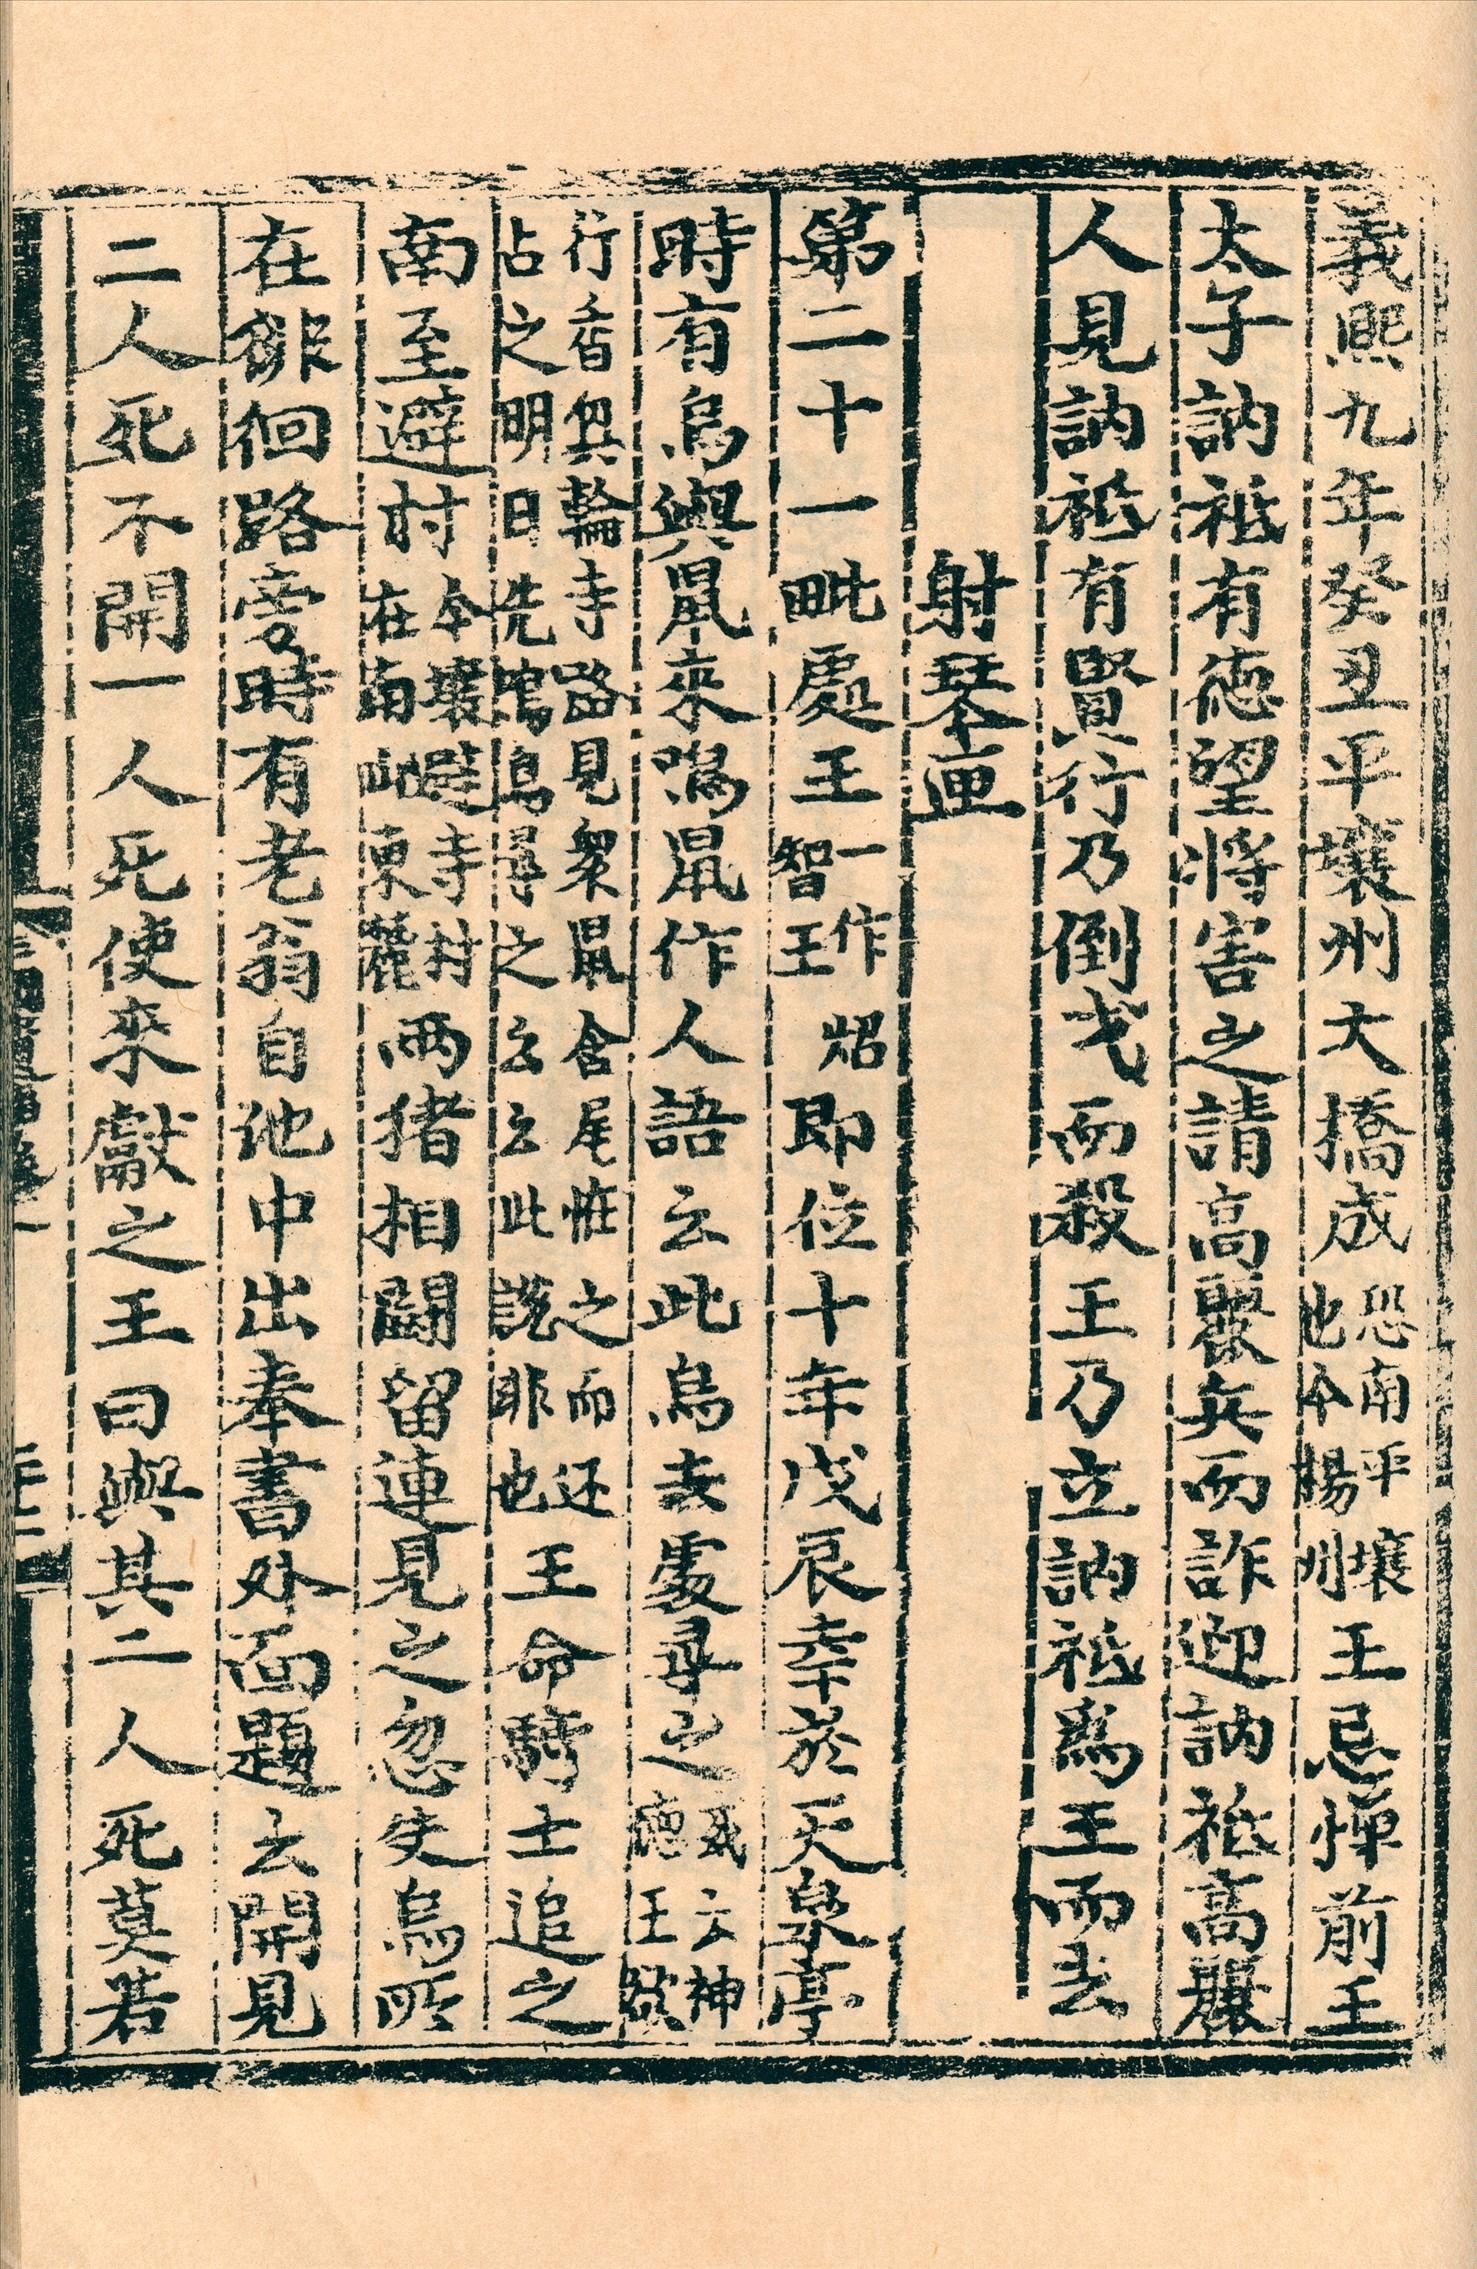 義熙九年癸丑平壤州大橋成恐南平壤也今楊州王忌憚前王
太子訥祗有德望將害之請高麗兵而詐迎訥祗高麗
人見訥祗有賢行乃倒戈而殺王乃立訥祗爲王而去
射琴匣
第二十一毗處王一作炤智王即位十年戊辰幸於天泉亭
時有烏與鼠來鳴鼠作人語云此烏去處尋之或云神德王欲
行香興輪寺路見衆鼠含尾怪之而还占之明日先鳴烏尋之云云此說非也王命騎士追之
南至避村今壤避寺村在南山東麓兩猪相鬪留連見之忽失烏所
在徘徊路旁時有老翁自池中出奉書外面題云開見
二人死不開一人死使來獻之王曰與其二人死莫若